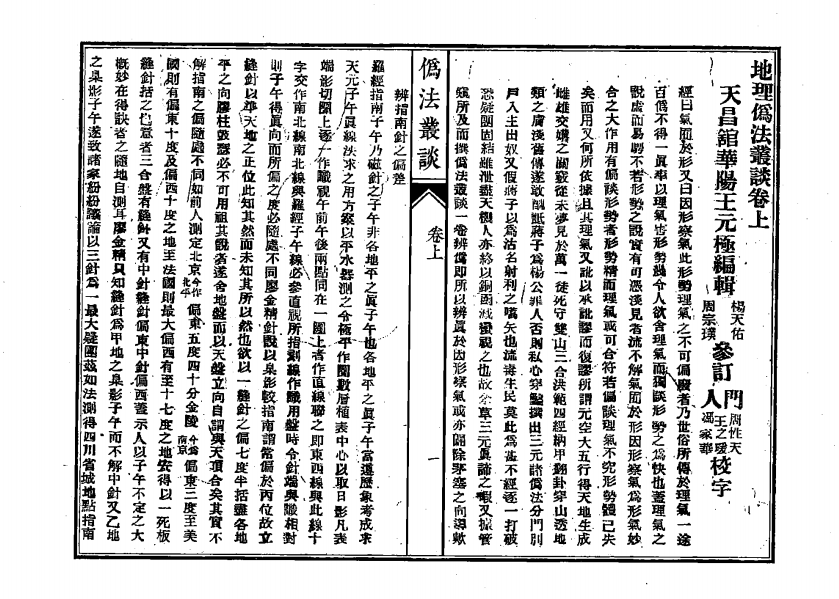 地理僞法叢談卷上
天昌舘華陽王元極編輯
楊天佑
周宗璞
參訂
門人
周性天
王之駿
馮家華
校字
經曰氣囿於形又曰因形察氣此形勢理氣之不可偏廢者乃世俗所傳於理氣一途
百僞不得一眞率以理氣皆形勢幾令人欲舍理氣而獨談形勢之爲快也蓋理氣之
說虛而易騁不若形勢之說實有可憑淺見者流不解氣囿於形因形察氣爲形氣妙
合之大作用有偏談形勢者形勢精而理氣或可合符若偏談理氣不究形勢體已失
矣而用又何所依據且其理氣又訛以承訛謬而復謬所謂元空大五行得天地生成
雌雄交媾之關竅從未夢見於萬一徒死守雙山三合洪範四經納甲翻卦穿山透地
類之膚淺舊傳遂敢詆蔣子爲楊公罪人否則私心穿鑿撰出三元諸僞法分門別
戶入主出奴又假蔣子以爲沽名射利之噶矢也流毒生民莫此爲甚不經逐一打破
恐疑團固結雖泄盡天機人亦終以銅函滅蠻視之也故草三元眞諦之暇又據管
窺所及而撰僞法叢談一卷辨僞卽所以辨眞於因形察氣或亦闢除茅塞之向導歟
僞法叢談
卷上
一
辨指南針之偏差
羅經指南子午乃磁針之子午非各地平之眞子午也各地平之眞子午當遵歷象考成求
天元子午眞線法求之用方案以平水器測之令極平作圈數層植表中心以取日影凡表
端影切圈上逐一作識視午前午後兩點同在一圈上者作直線聯之卽東西線與此線十
字交作南北線南北線與羅經子午線必參直視所指劃線作識用盤時令針端與識相對
則子午得眞向而所偏之度必隨處不同廖金精針說以臬影較指南謂常偏於丙位故立
縫針以準天地之正位此知其然而未知其所以然也欲以一縫針之偏七度半括盡各地
平之向膠柱鼓瑟必不可用祖其說者遂舍地盤而以天盤立向自謂與天頂合矣其實不
解指南之偏隨處不同如前人測定北京今作北平偏東五度四十分金陵今爲南京偏東三度至美
國則有偏東十度及偏西十度之地至法國則最大偏西有至十七度之地安得以一死板
縫針括之也意者三合盤有縫針又有中針縫針偏東中針偏西蓋示人以子午不定之大
槪妙在得訣者之隨地自測耳廖金精只知縫針爲甲地之臬影子午而不解中針又乙地
之臬影子午遂致諸家紛紛議論以三針爲一最大疑團茲如法測得四川省城地點指南